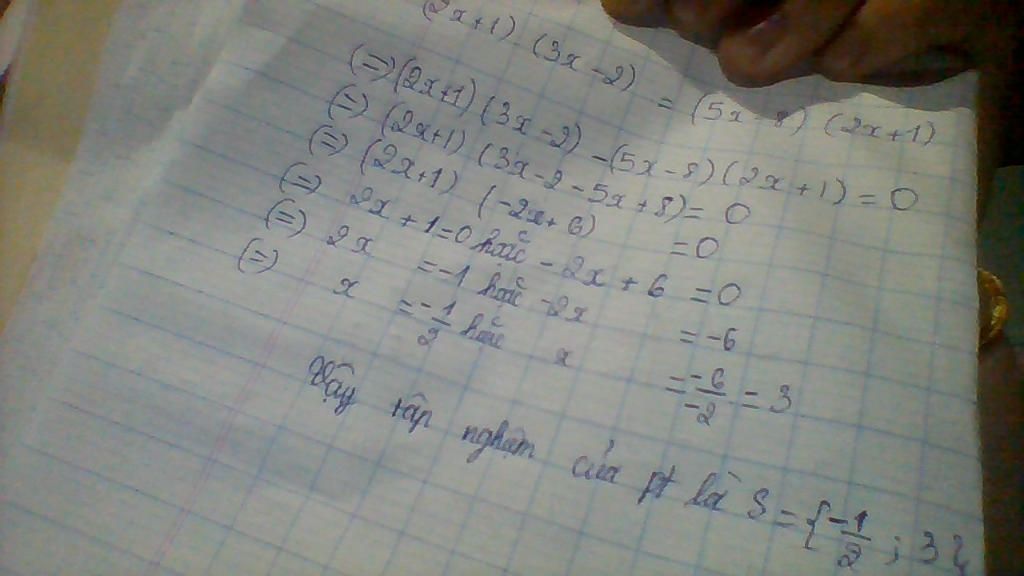 (2x+1) (3x-2) = (5x-8) (2x+1)
(=) (2x+1) (3x-2) -(5x-8) (2x+1) = 0
(=) (2x+1) (3x-2-5x+8) = 0
(=) (2x+1) (-2x+6) = 0
(=) 2x+1=0 hoặc -2x+6 = 0
(=) 2x = -1 hoặc -2x = -6
(=) x = -1/2 hoặc x = -6/-2 = 3
Vậy tập nghiệm của pt là S = {-1/2 ; 3}